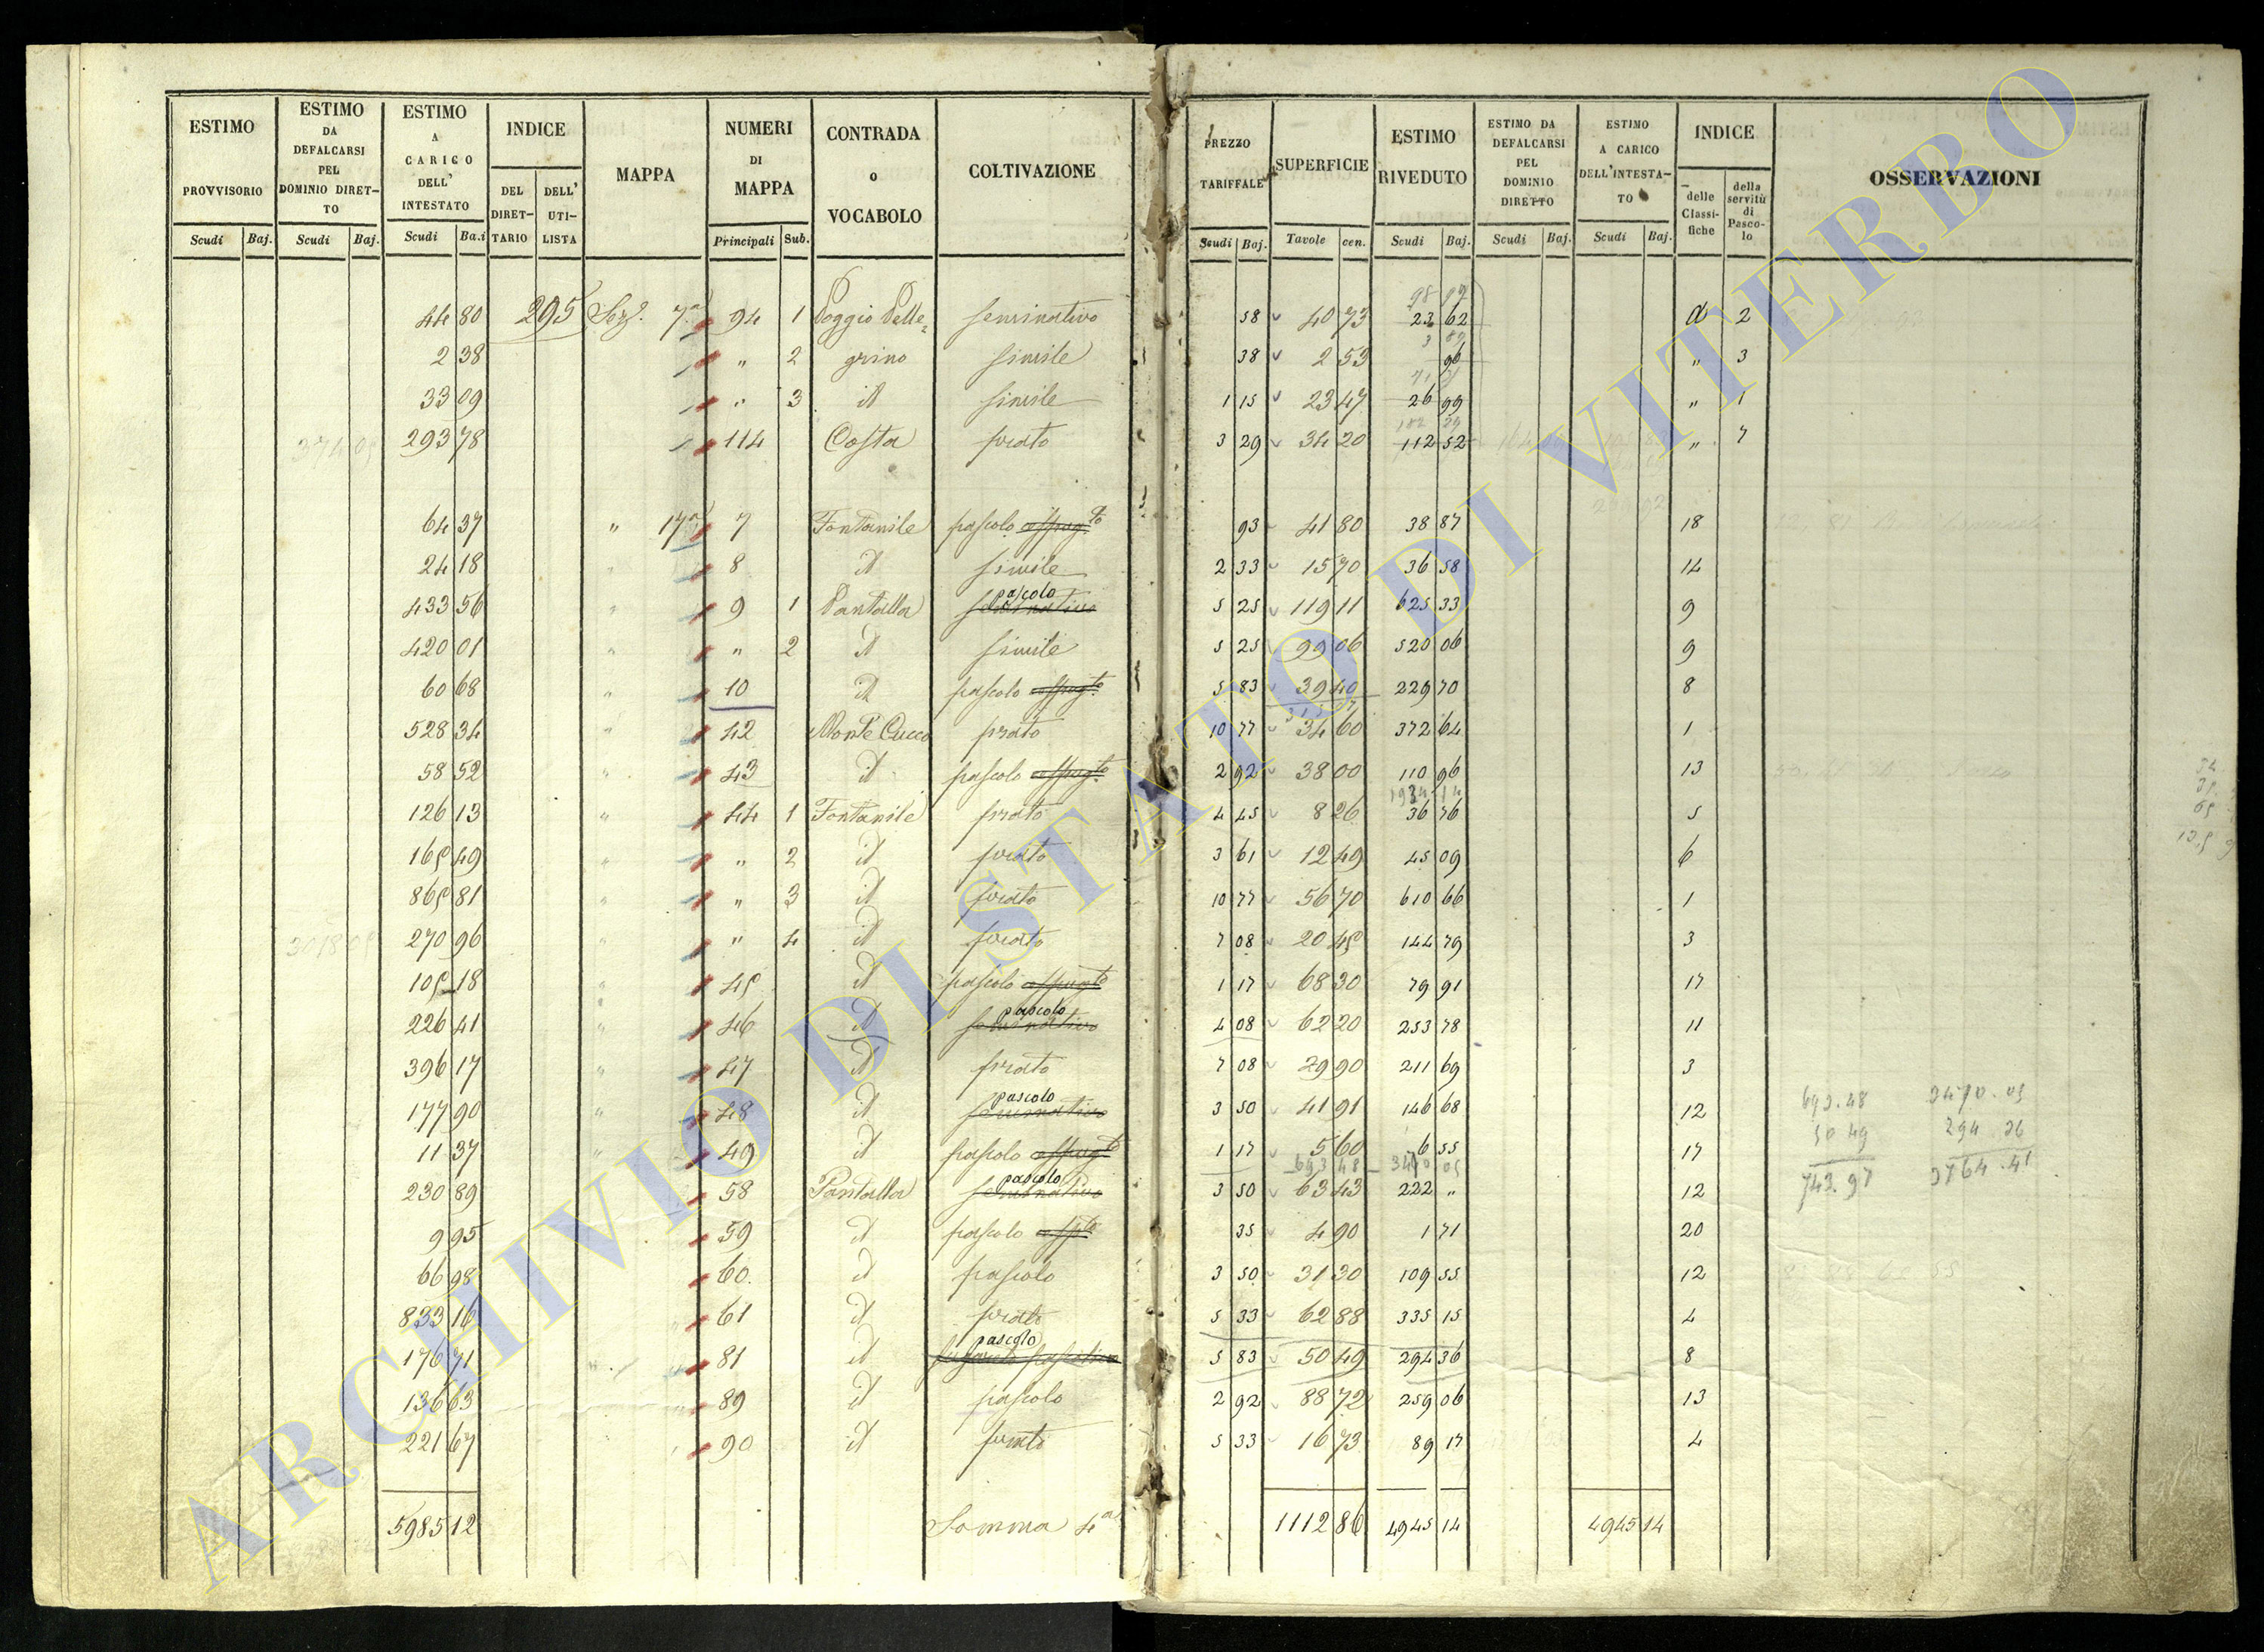 ESTIMO PROVVISORIO Scudi Baj.
ESTIMO DA DEFALCARSI PEL DOMINIO DIRETTO Scudi Baj.
ESTIMO A CARICO DELL' INTESTATO Scudi Ba.i
INDICE DEL DIRETTARIO DELL' UTILISTA
MAPPA
NUMERI DI MAPPA Principali Sub.
CONTRADA o VOCABOLO
COLTIVAZIONE
PREZZO TARIFFALE Scudi Baj.
SUPERFICIE Tavole cen.
ESTIMO RIVEDUTO Scudi Baj.
ESTIMO DA DEFALCARSI PEL DOMINIO DIRETTO Scudi Baj.
ESTIMO A CARICO DELL'INTESTATO Scudi Baj.
INDICE delle Classifiche della servitù di Pascolo
OSSERVAZIONI
44 80 295 Sez. 7a 94 1 Poggio Pelle= seminativo 58 40 73 23 62 d 2
2 38 " 2 grino simile 38 2 53 96 " 3
33 09 " 3 id simile 1 15 23 47 26 99 " 1
293 78 114 Costa prato 3 29 34 20 112 52 " 7
64 37 " 17a 7 Fontanile pascolo 93 41 80 38 87 18
24 18 " 8 id simile 2 33 15 70 36 58 14
433 56 " 9 1 Pantalla pascolo seminativo 5 25 119 11 625 33 9
420 01 " " 2 id simile 5 25 99 06 520 06 9
60 68 " 10 id pascolo 5 83 39 40 229 70 8
528 34 " 42 Monte Cucco prato 10 77 34 60 372 64 1
58 52 " 43 id pascolo 2 92 38 00 110 96 13
126 13 " 44 1 Fontanile prato 4 45 8 26 36 76 5
165 49 " " 2 id prato 3 61 12 49 45 09 6
865 81 " " 3 id prato 10 77 56 70 610 66 1
3018 05 270 96 " " 4 id prato 7 08 20 45 144 79 3
105 18 " 45 id pascolo 1 17 68 30 79 91 17
226 41 " 46 id pascolo seminativo 4 08 62 20 253 78 11
396 17 " 47 id prato 7 08 29 90 211 69 3
177 90 " 48 id pascolo seminativo 3 50 41 91 146 68 12
11 37 " 49 id pascolo 1 17 5 60 6 55 17
230 89 58 Pantalla pascolo seminativo 3 50 63 43 222 " 12
9 95 59 id pascolo 35 4 90 1 71 20
66 98 60 id pascolo 3 50 31 30 109 55 12
833 16 " 61 id prato 5 33 62 88 335 15 4
176 71 " 81 id pascolo 5 83 50 49 294 36 8
136 63 " 89 id pascolo 2 92 88 72 259 06 13
221 67 " 90 id prato 5 33 16 73 89 17 4
5985 12 Somma 4a 1112 86 4945 14 4945 14
693.48
50 49
743.97
3470.05
294 36
3764.41
ARCHIVIO DI STATO DI VITERBO